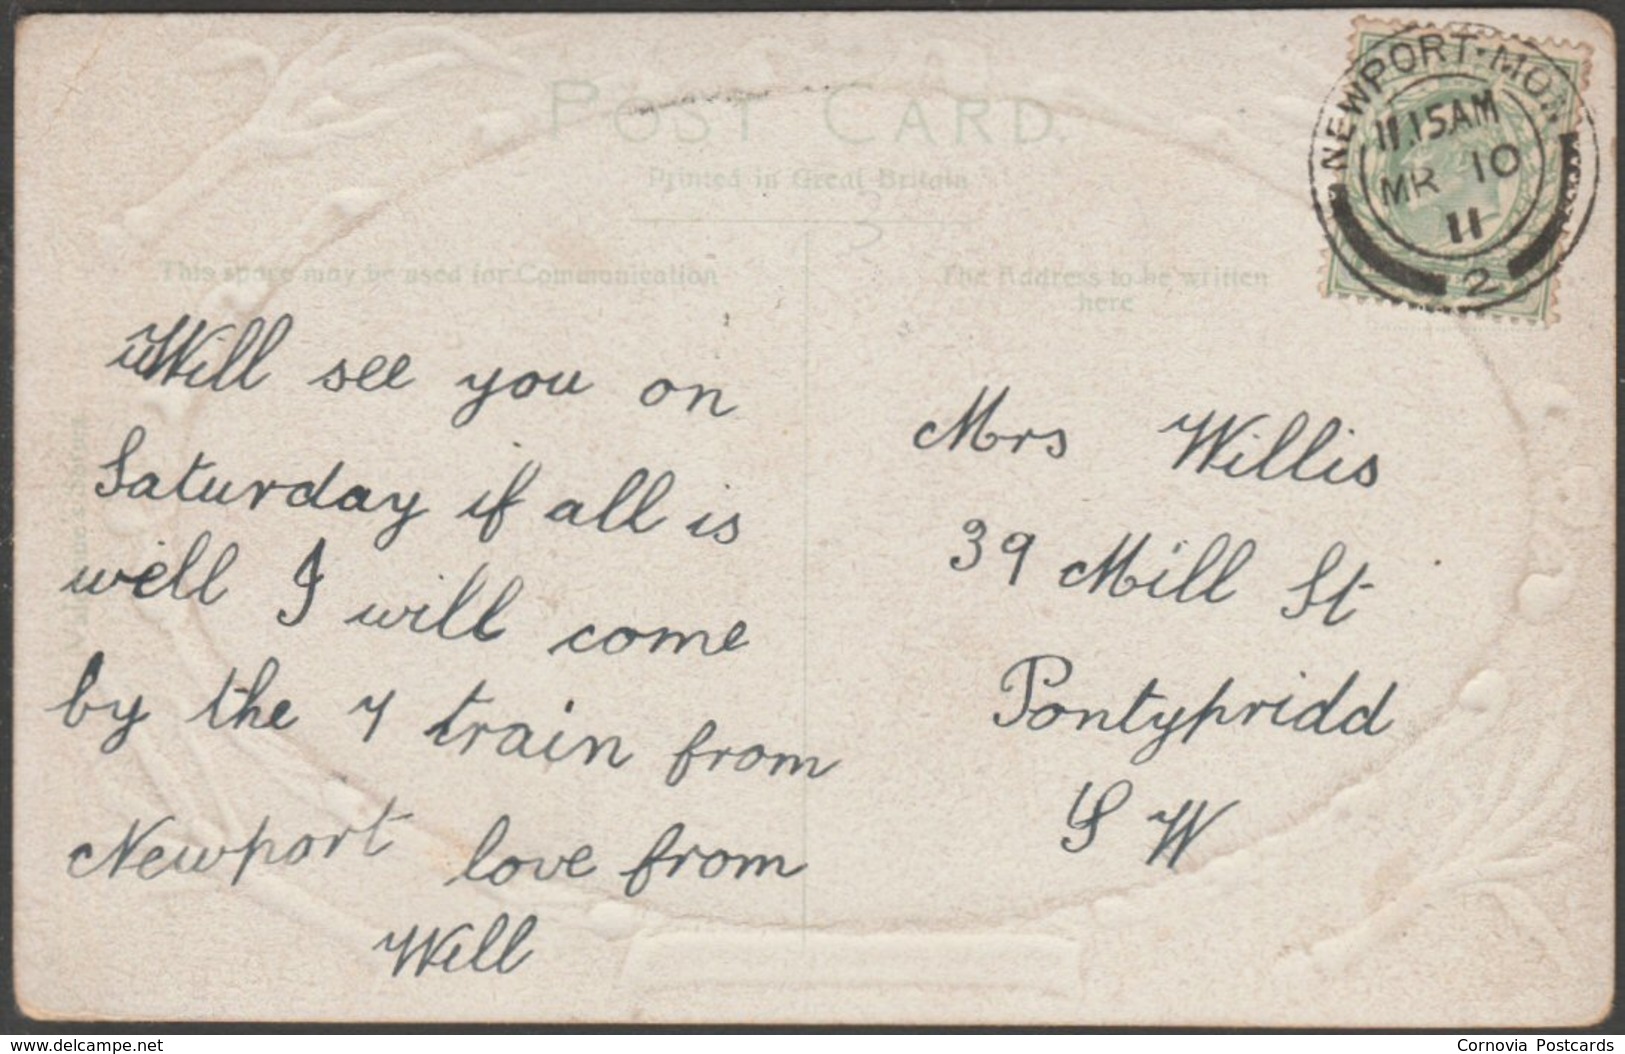 POST CARD.
Printed in Great Britain
This space may be used for Communication
The Address to be written
here
NEWPORT·MON.
11.15AM
MR 10
11
2
Will see you on
Saturday if all is
well I will come
by the 7 train from
Newport love from
Will
Mrs Willis
39 Mill St
Pontypridd
S W
delcampe.net
Cornovia Postcards